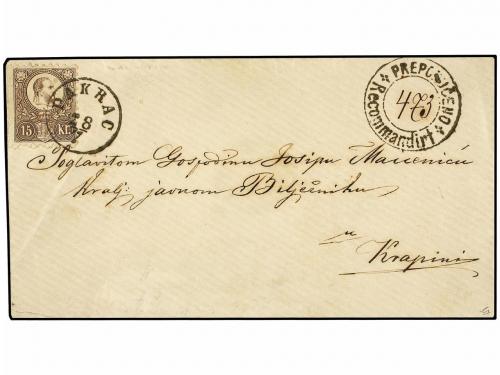 15 Kr
PAKRAC
8
PREPORUČENO
Recommandirt
473
Poglavitom Gospodinu Josipu
Kralj: javnom Bilježniku
u
Krapini